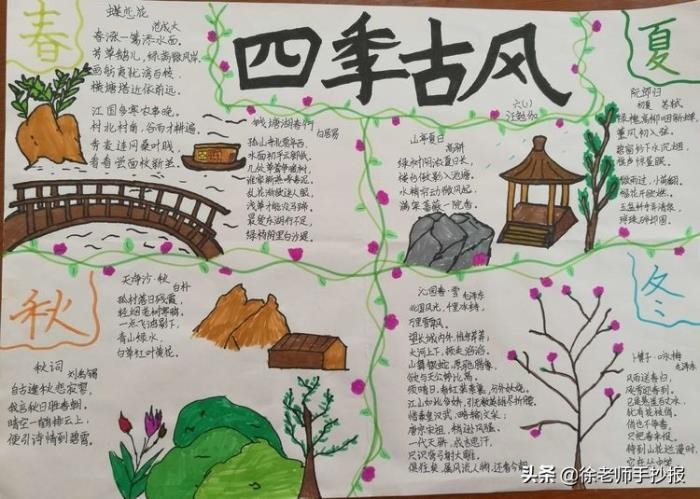 四季古风
春
蝶恋花
范成大
春涨一篙添水面。
芳草鹅儿,绿满微风岸。
画舫夷犹湾百转。
横塘塔近依前远。
江国多寒农事晚。
村北村南,谷雨才耕遍。
秀麦连冈桑叶贱。
看看尝面收新茧。
钱塘湖春行
白居易
孤山寺北贾亭西。
水面初平云脚低。
几处早莺争暖树。
谁家新燕啄春泥。
乱花渐欲迷人眼。
浅草才能没马蹄。
最爱湖东行不足。
绿杨阴里白沙堤。
六(1)
山亭夏日
高骈
绿树阴浓夏日长。
楼台倒影入池塘。
水精帘动微风起。
满架蔷薇一院香。
夏
阮郎归
初夏 苏轼
绿槐高柳咽新蝉。
薰风初入弦。
碧纱窗下水沉烟。
棋声惊昼眠。
微雨过,小荷翻。
榴花开欲燃。
玉盆纤手弄清泉。
琼珠碎却圆。
秋
天净沙·秋
白朴
孤村落日残霞,
轻烟老树寒鸦,
一点飞鸿影下。
青山绿水,
白草红叶黄花。
秋词
刘禹锡
自古逢秋悲寂寥,
我言秋日胜春朝。
晴空一鹤排云上,
便引诗情到碧霄。
沁园春·雪
毛泽东
北国风光,千里冰封,
万里雪飘。
望长城内外,惟余莽莽;
大河上下,顿失滔滔。
山舞银蛇,原驰蜡象,
欲与天公试比高。
须晴日,看红装素裹,分外妖娆。
江山如此多娇,引无数英雄尽折腰。
惜秦皇汉武,略输文采;
唐宗宋祖,稍逊风骚。
一代天骄,成吉思汗,
只识弯弓射大雕。
俱往矣,数风流人物,还看今朝
冬
卜算子·咏梅
毛泽东
风雨送春归,
飞雪迎春到。
已是悬崖百丈冰,
犹有花枝俏。
俏也不争春,
只把春来报。
待到山花烂漫时,
她在丛中笑
头条 @徐老师手抄报